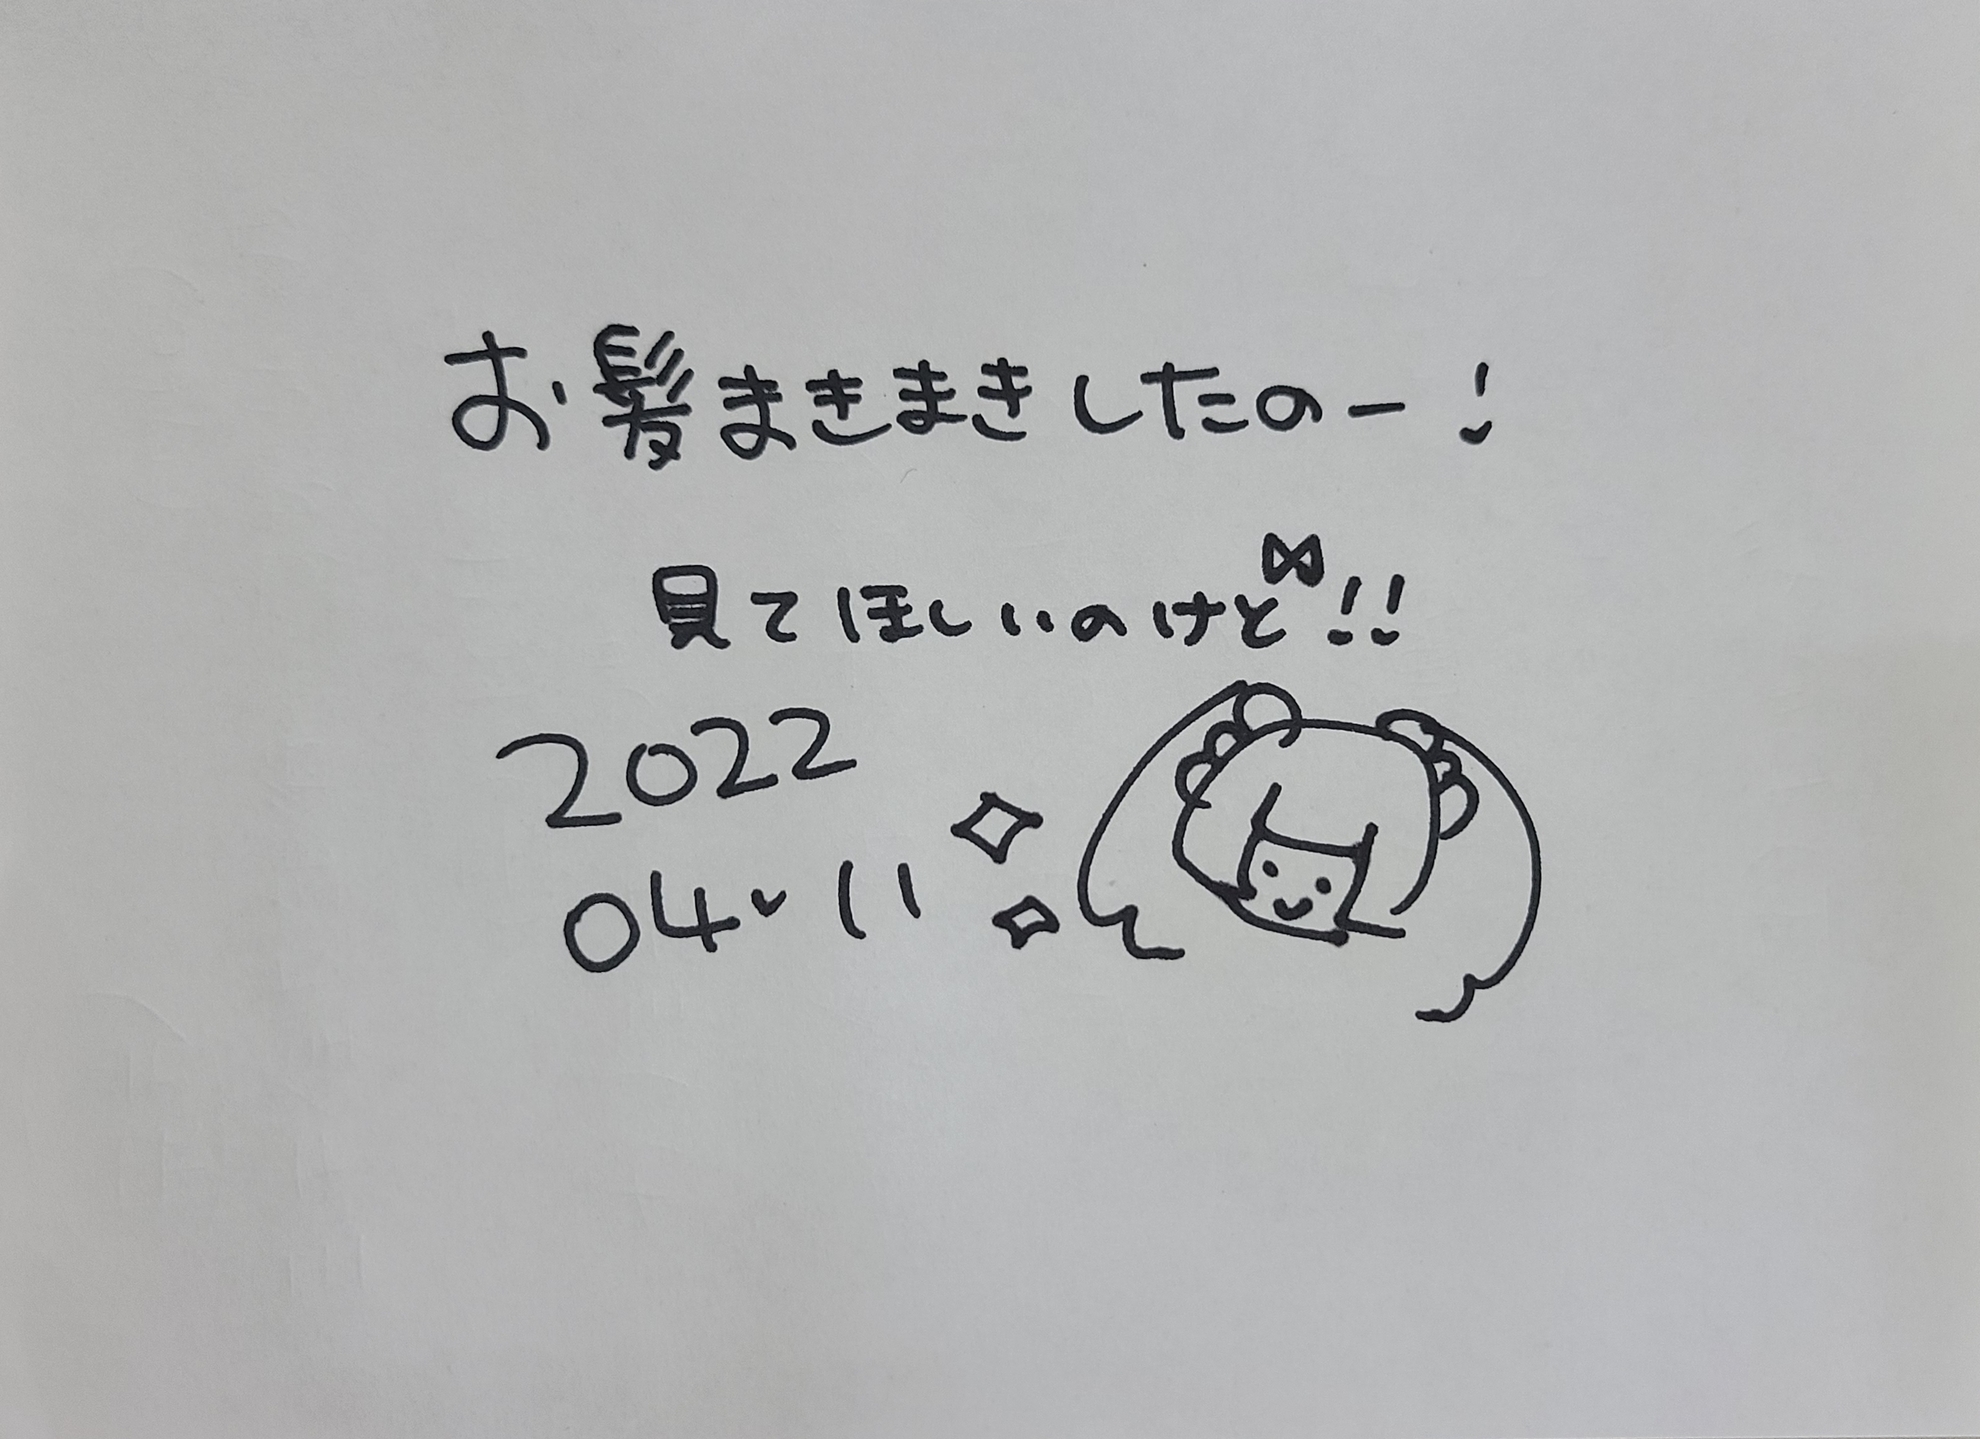 お髪まきまきしたのー！
見てほしいのけど!!
2022
04.11